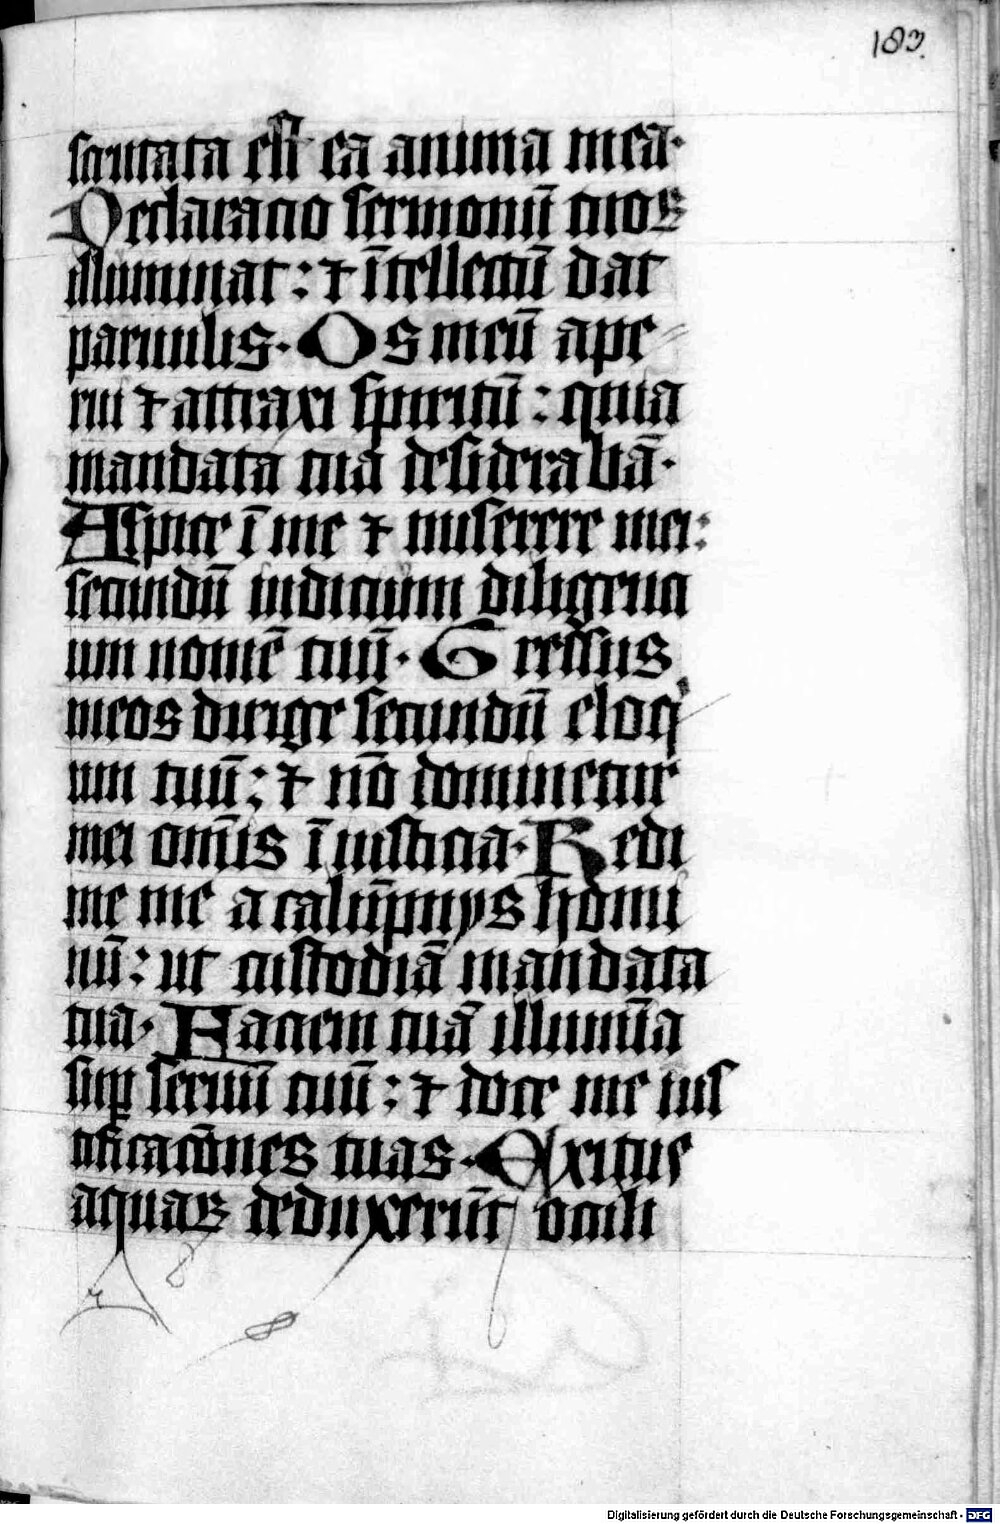 183.
scrutata est ea anima mea.
Declaratio sermonū tuoꝝ
illuminat: ⁊ ītellectū dat
paruulis. Os meū ape⸗
rui ⁊ attraxi spiritū: quia
mandata tua desiderabā.
Aspice ī me ⁊ miserere mei:
secundū iudicium diligenci
um nomē tuū. Gressus
meos dirige secundū eloq'
um tuū: ⁊ nō dominetur
mei om̄is īiusticia. Redi
me me a calūpnijs homi
nū: ut custodiā mandata
tua. Faciem tuā illumīa
suꝑ seruū tuū: ⁊ doce me ius
tificacōnes tuas. Exitus
aquaꝝ deduxerūt oculi
Digitalisierung gefördert durch die Deutsche Forschungsgemeinschaft - DFG